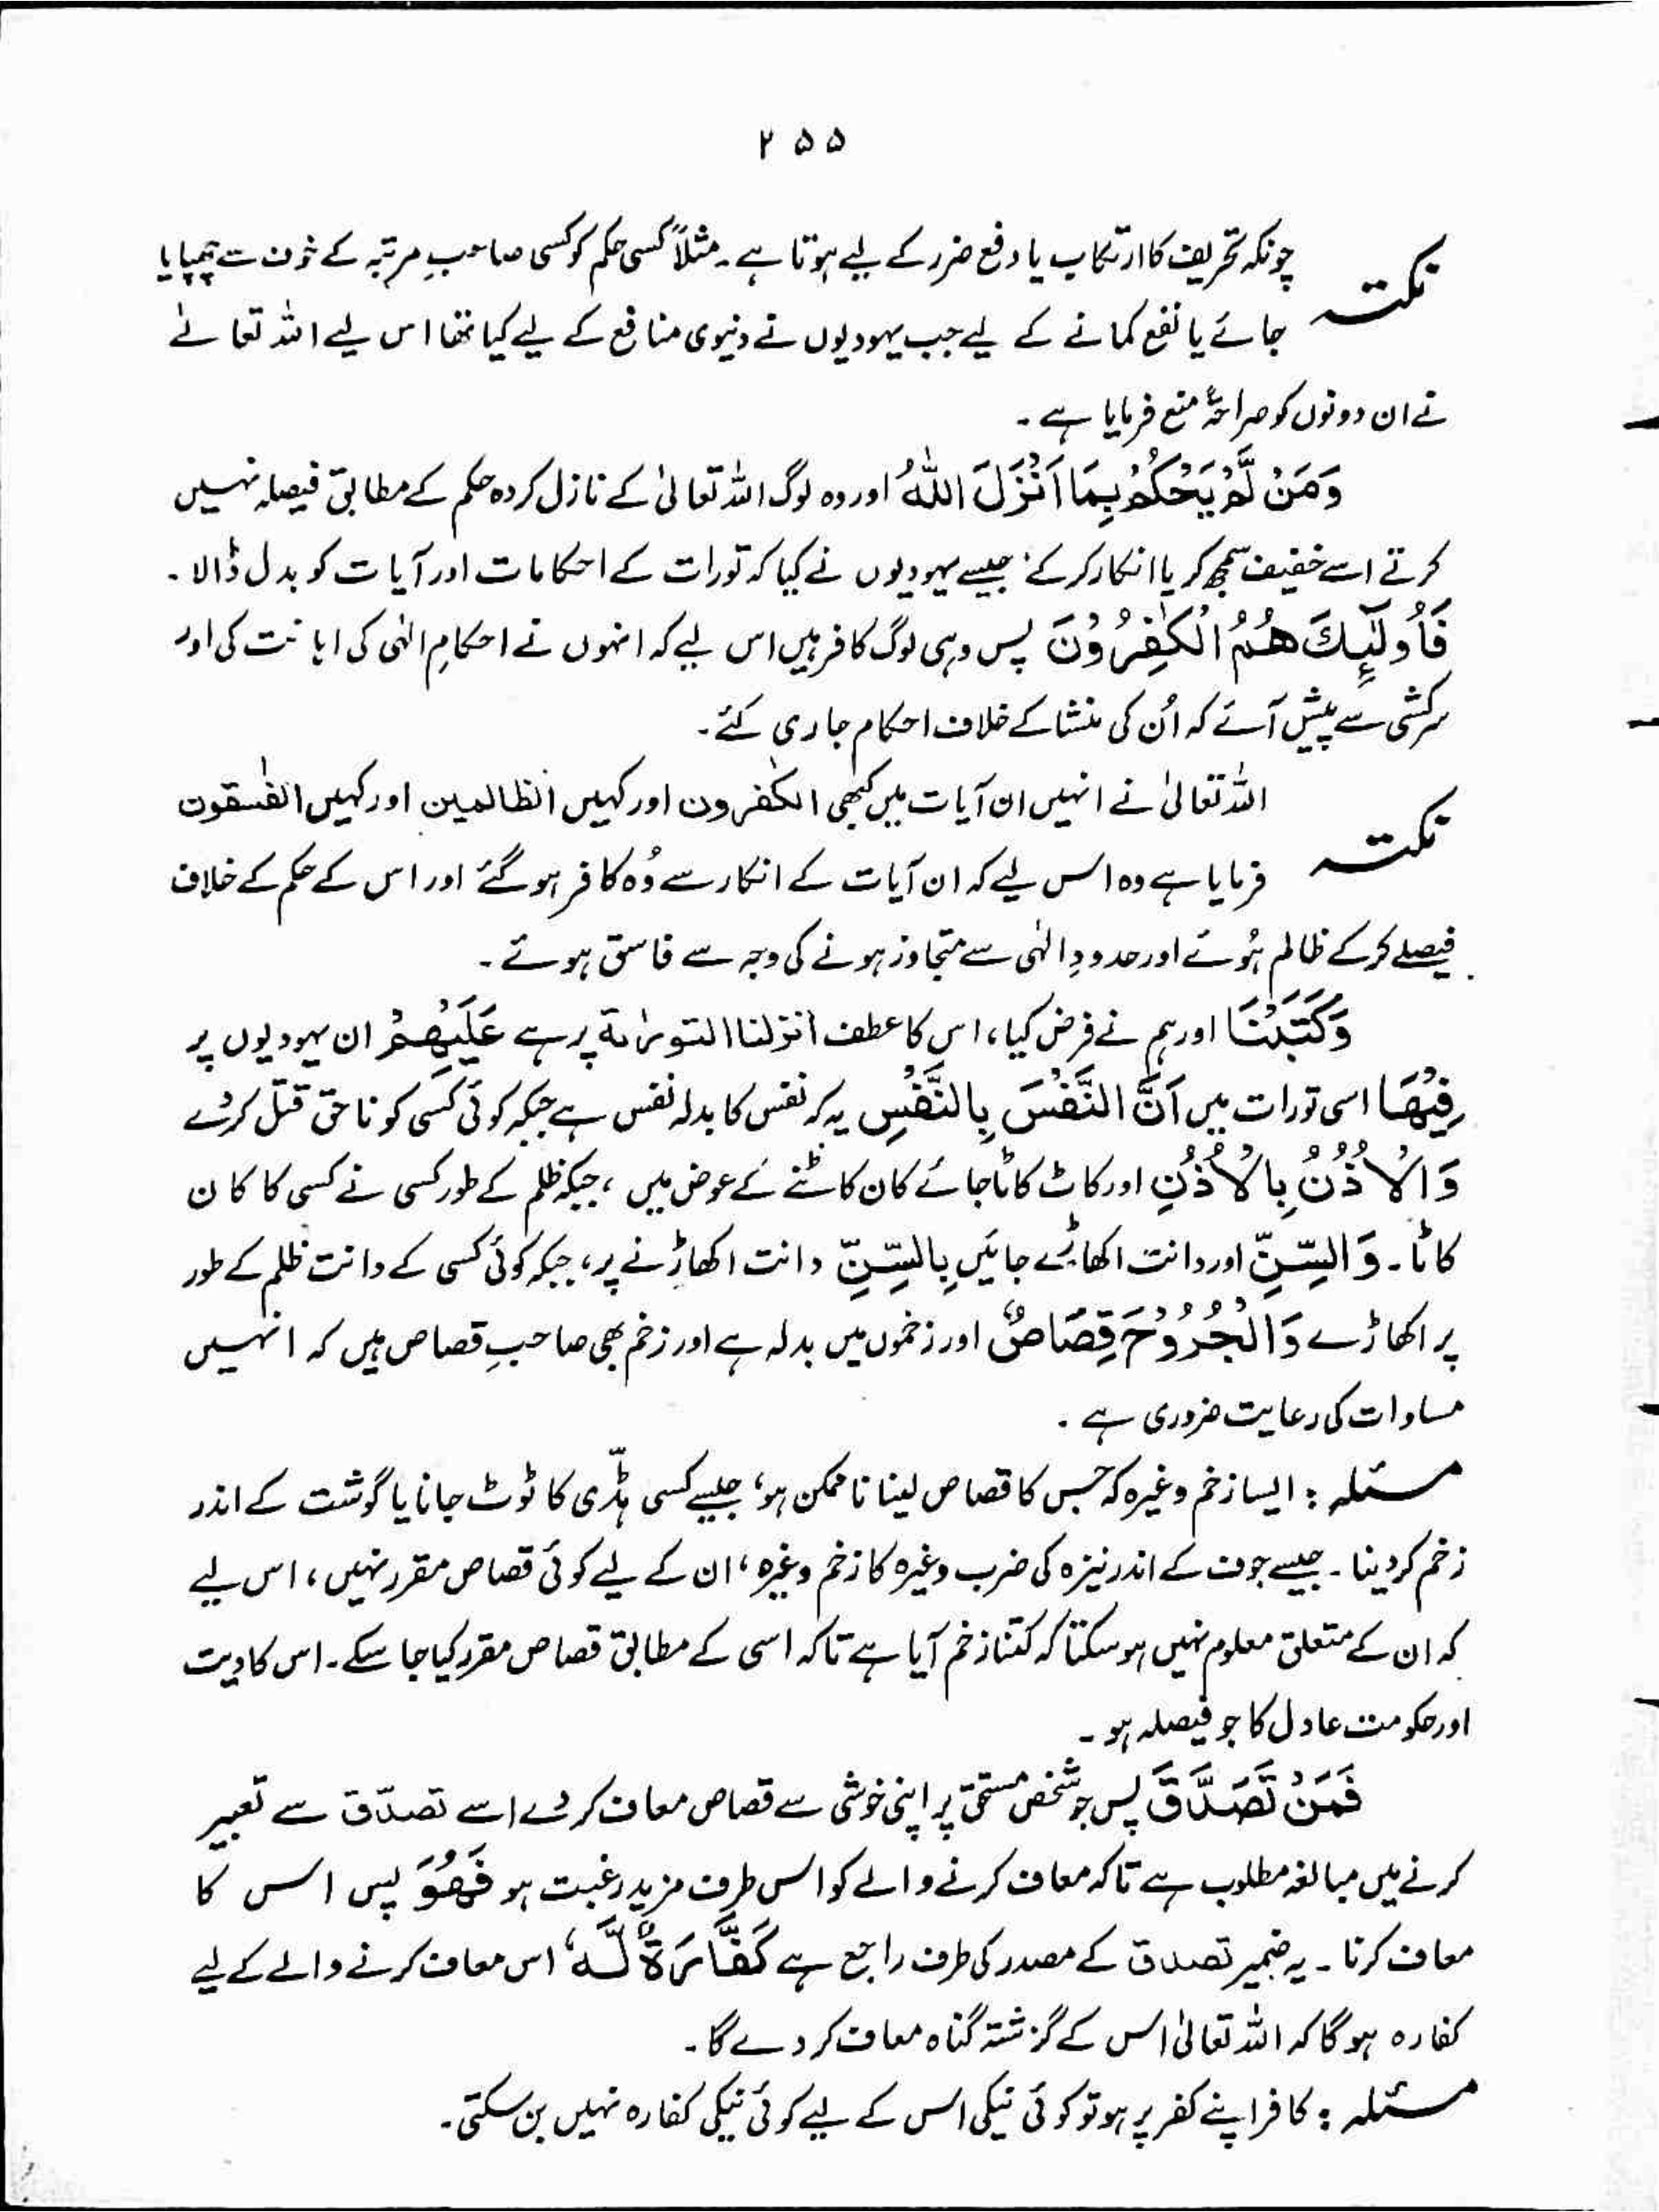 ۲۵۵
نکتہ چونکہ تحریف کا ارتکاب یا دفع ضرر کے لیے ہوتا ہے۔ مثلاً کسی حکم کو کسی صاحبِ مرتبہ کے خوف سے چھپایا
جائے یا نفع کمانے کے لیے جب یہودیوں نے دنیوی منافع کے لیے کیا تھا اس لیے اللہ تعالےٰ
نے ان دونوں کو صراحۃً منع فرمایا ہے۔
وَمَنْ لَّمْ یَحْکُمْ بِمَا اَنْزَلَ اللّٰہُ اور وہ لوگ اللہ تعالیٰ کے نازل کردہ حکم کے مطابق فیصلہ نہیں
کرتے اسے خفیف سمجھ کر یا انکار کر کے، جیسے یہودیوں نے کیا کہ تورات کے احکامات اور آیات کو بدل ڈالا۔
فَاُولٰٓئِكَ ھُمُ الْکٰفِرُوْنَ پس وہی لوگ کافر ہیں اس لیے کہ انہوں نے احکامِ الٰہی کی اہانت کی اور
سرکشی سے پیش آئے کہ اُن کی منشا کے خلاف احکام جاری کئے۔
نکتہ اللہ تعالیٰ نے انہیں ان آیات میں کبھی الکٰفرون اور کہیں الظالمین اور کہیں الفٰسقون
فرمایا ہے وہ اس لیے کہ ان آیات کے انکار سے وُہ کافر ہو گئے اور اس کے حکم کے خلاف
فیصلے کر کے ظالم ہُوئے اور حدودِ الٰہی سے متجاوز ہونے کی وجہ سے فاسق ہوئے۔
وَکَتَبْنَا اور ہم نے فرض کیا، اس کا عطف انزلنا التورٰىة پر ہے عَلَیْھِمْ ان یہودیوں پر
فِیْھَا اسی تورات میں اَنَّ النَّفْسَ بِالنَّفْسِ یہ کہ نفس کا بدلہ نفس ہے جبکہ کوئی کسی کو ناحق قتل کر دے
وَالْاُذُنُ بِالْاُذُنِ اور کاٹ کاٹا جائے کان کاٹنے کے عوض میں، جبکہ ظلم کے طور کسی نے کسی کا کان
کاٹا۔ وَالسِّنِّ اور دانت اکھاڑے جائیں بِالسِّنِّ دانت اکھاڑنے پر، جبکہ کوئی کسی کے دانت ظلم کے طور
پر اکھاڑے وَالْجُرُوْحَ قِصَاصٌ اور زخموں میں بدلہ ہے اور زخم بھی صاحبِ قصاص ہیں کہ انہیں
مساوات کی رعایت ضروری ہے۔
مسئلہ : ایسا زخم وغیرہ کہ جس کا قصاص لینا ناممکن ہو، جیسے کسی ہڈّی کا ٹوٹ جانا یا گوشت کے اندر
زخم کر دینا۔ جیسے جوف کے اندر نیزہ کی ضرب وغیرہ کا زخم وغیرہ، ان کے لیے کوئی قصاص مقرر نہیں، اس لیے
کہ ان کے متعلق معلوم نہیں ہو سکتا کہ کتنا زخم آیا ہے تاکہ اسی کے مطابق قصاص مقرر کیا جا سکے۔ اس کا دیت
اور حکومت عادل کا جو فیصلہ ہو۔
فَمَنْ تَصَدَّقَ پس جو شخص مستحق پر اپنی خوشی سے قصاص معاف کر دے اسے تصدّق سے تعبیر
کرنے میں مبالغہ مطلوب ہے تاکہ معاف کرنے والے کو اس طرف مزید رغبت ہو فَھُوَ پس اس کا
معاف کرنا۔ یہ ضمیر تصدق کے مصدر کی طرف راجع ہے کَفَّارَۃٌ لَّہٗ، اس معاف کرنے والے کے لیے
کفارہ ہوگا کہ اللہ تعالیٰ اس کے گزشتہ گناہ معاف کر دے گا۔
مسئلہ : کافر اپنے کفر پر ہو تو کوئی نیکی اس کے لیے کوئی نیکی کفارہ نہیں بن سکتی۔